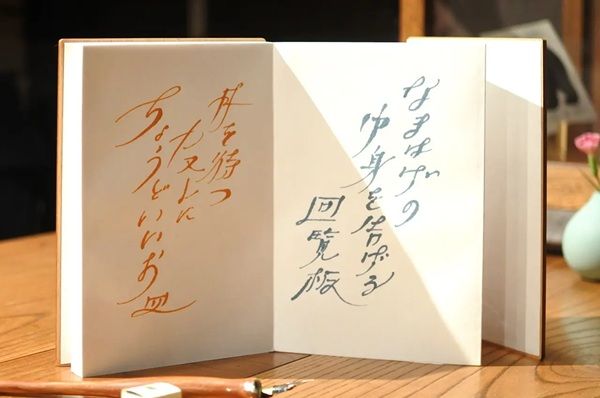 なまはげの
中身を告げる
回覧板
母を待つ
カヌレに
ちょうどいいお皿